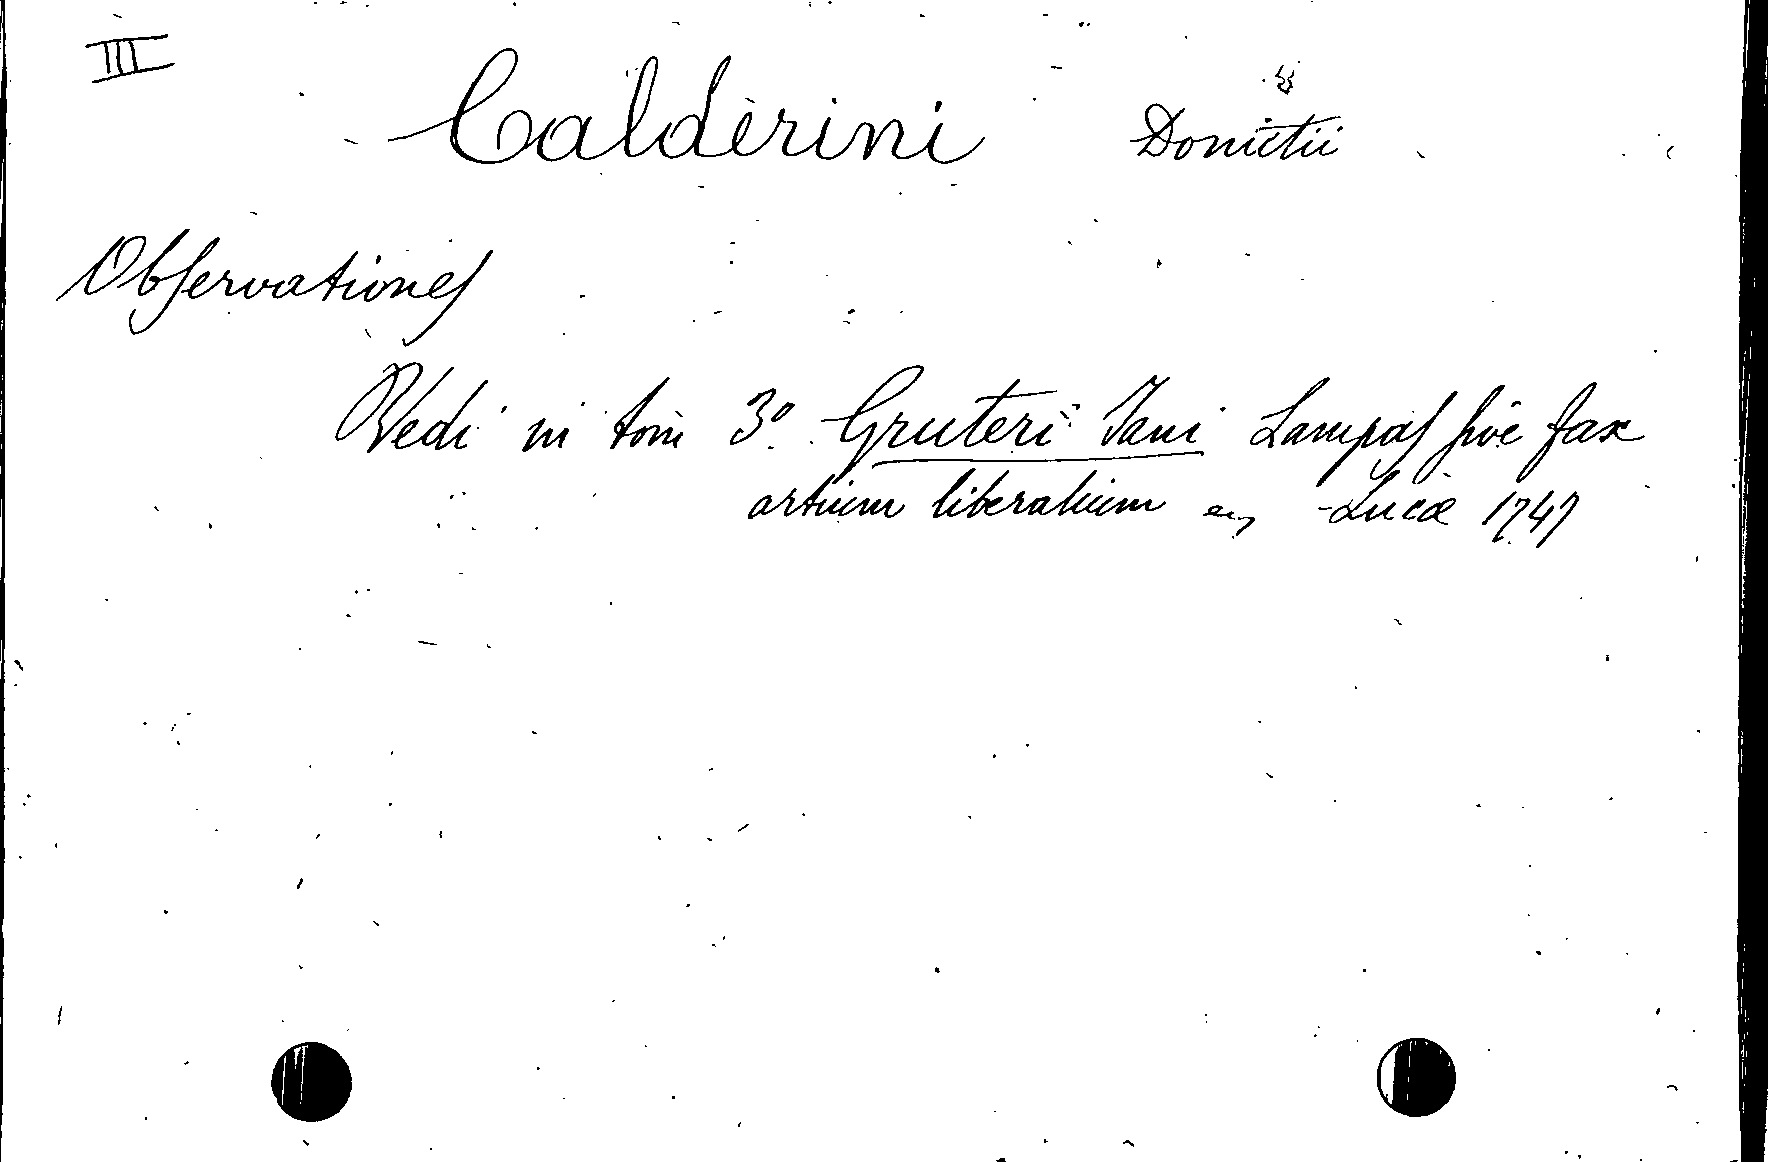 III
Calderini Domitii
Obſervationes
Vedi in tom 3º Gruteri Jani Lampas ſive fax
artium liberalium Lucæ 1747